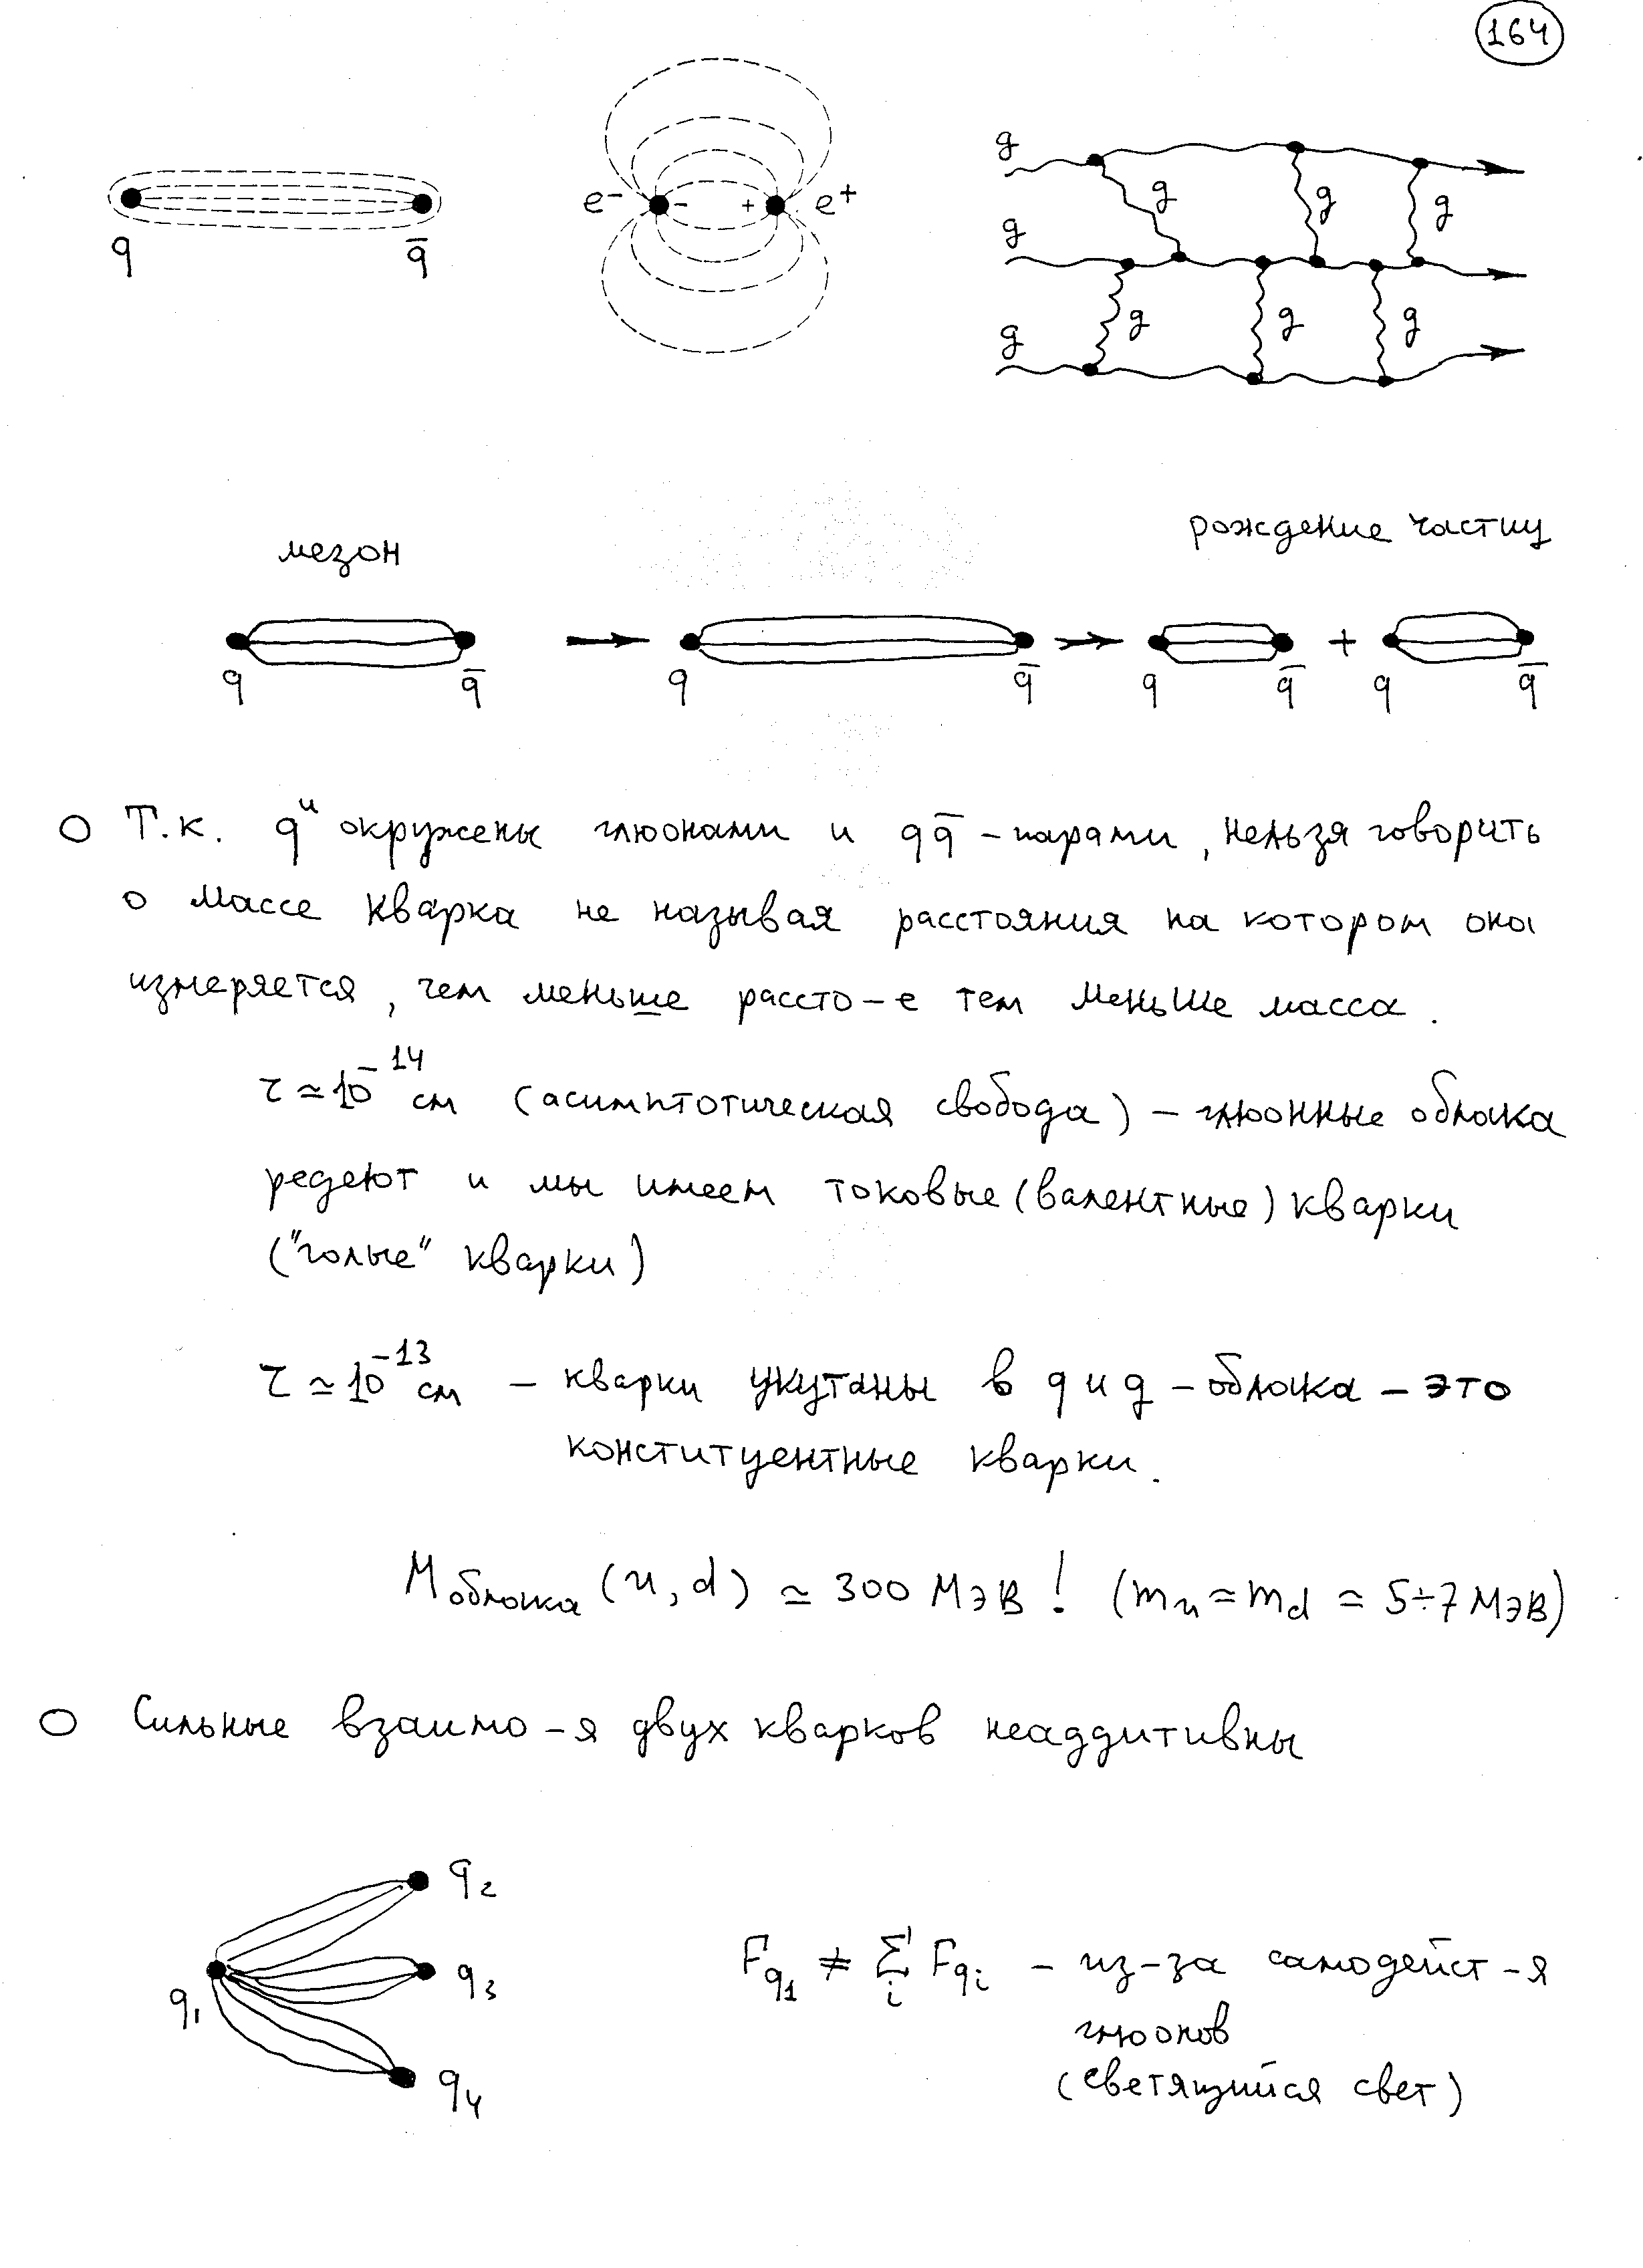 164
q q̄ e⁻ - + e⁺ g g g g g g g g g
мезон рождение частиц
q q̄ → q q̄ → q q̄ + q q̄
Т.к. qᴵᴵ окружены глюонами и qq̄ - парами, нельзя говорить
о массе кварка не называя расстояния на котором она
измеряется, чем меньше рассто-е тем меньше масса.
r ≃ 10⁻¹⁴ см (асимптотическая свобода) – глюонные облака
редеют и мы имеем токовые (валентные) кварки
("голые" кварки)
r ≃ 10⁻¹³ см – кварки укутаны в q и g – облака – это
конституентные кварки.
M облака (u, d) ≃ 300 МэВ ! (mᵤ ≃ m_d ≃ 5÷7 МэВ)
Сильные взаимо-я двух кварков неаддитивны
q₁ q₂ q₃ q₄
F_q₁ ≠ Σ_i F_qi – из-за самодейст-я
глюонов
(светящийся свет)